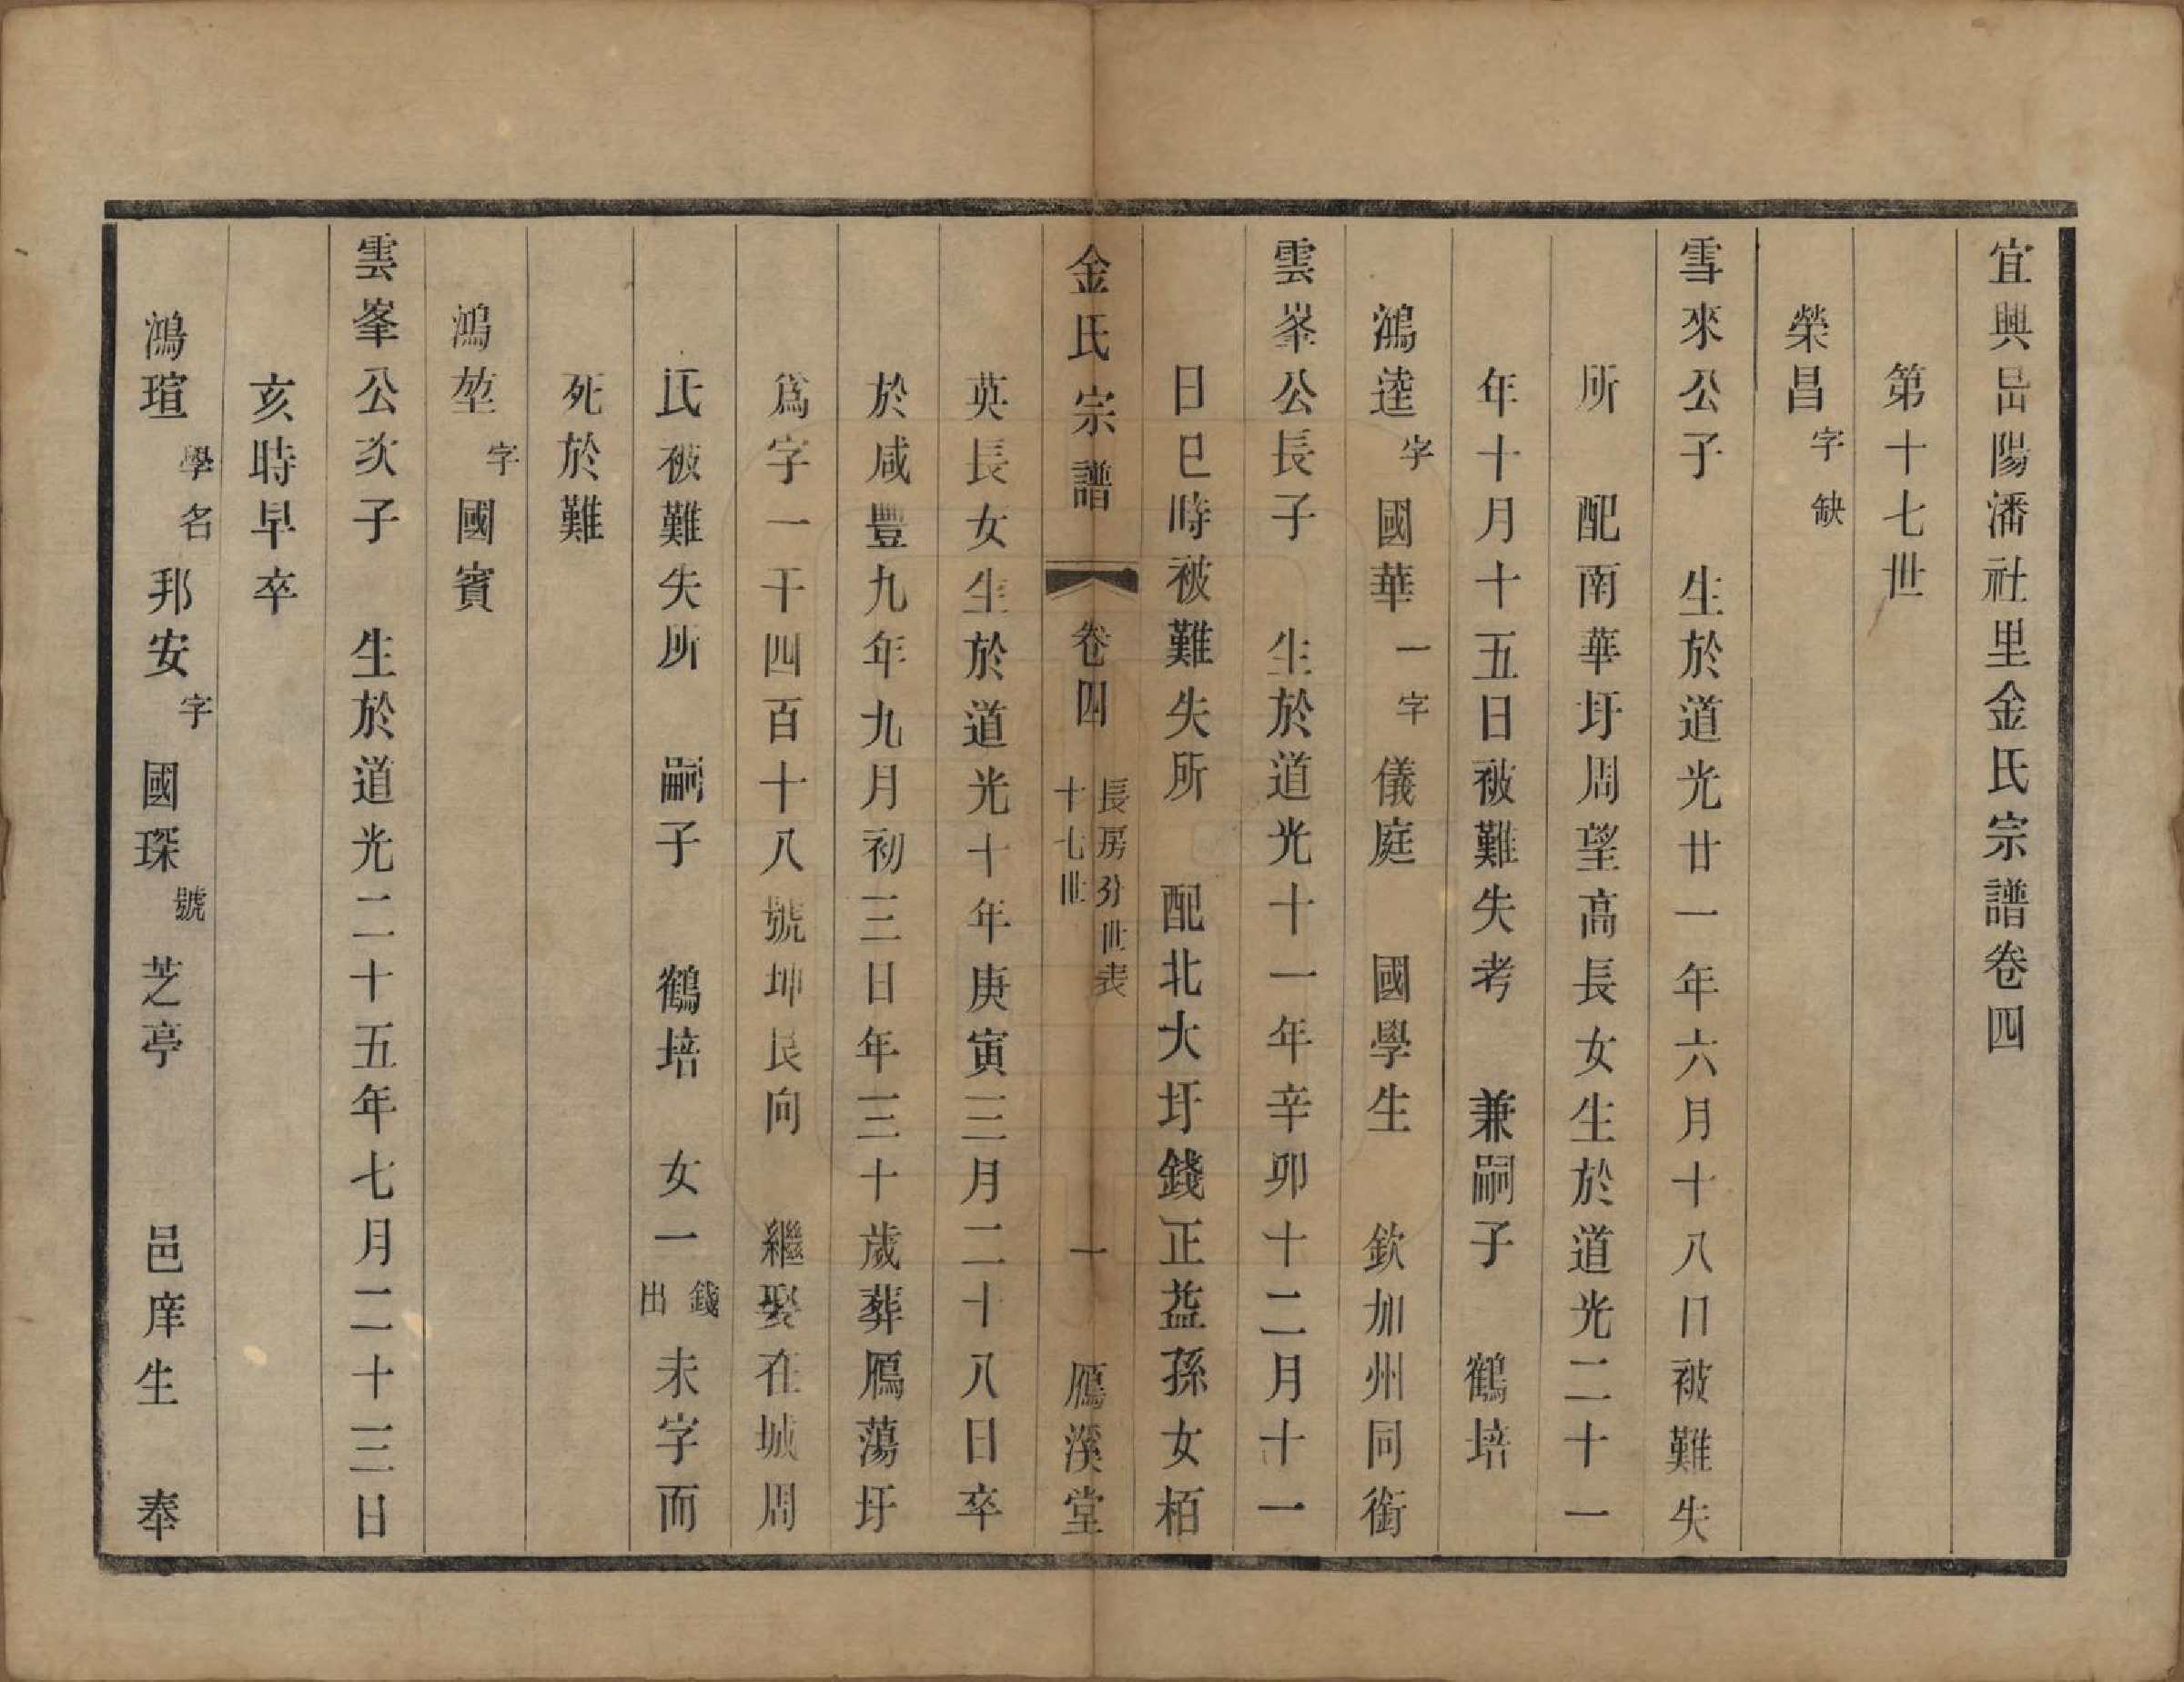 宜興嵒陽潘社里金氏宗譜卷四
第十七世
榮昌字缺
雪來公子 生於道光廿一年六月十八日被難失
所 配南華圩周望高長女生於道光二十一
年十月十五日被難失考 兼嗣子 鶴培
鴻逵字國華一字儀庭 國學生 欽加州同銜
雲峯公長子 生於道光十一年辛卯十二月十一
日巳時被難失所 配北大圩錢正益孫女栢
金氏宗譜 卷四 長房分世表 十七世 一 鴈溪堂
英長女生於道光十年庚寅三月二十八日卒
於咸豐九年九月初三日年三十歲葬鴈蕩圩
爲字一千四百十八號坤艮向 繼娶在城周
氏被難失所 嗣子 鶴培 女一錢出未字而
死於難
鴻堃字國賓
雲峯公次子 生於道光二十五年七月二十三日
亥時早卒
鴻瑄學名邦安字國琛號芝亭 邑庠生 奉